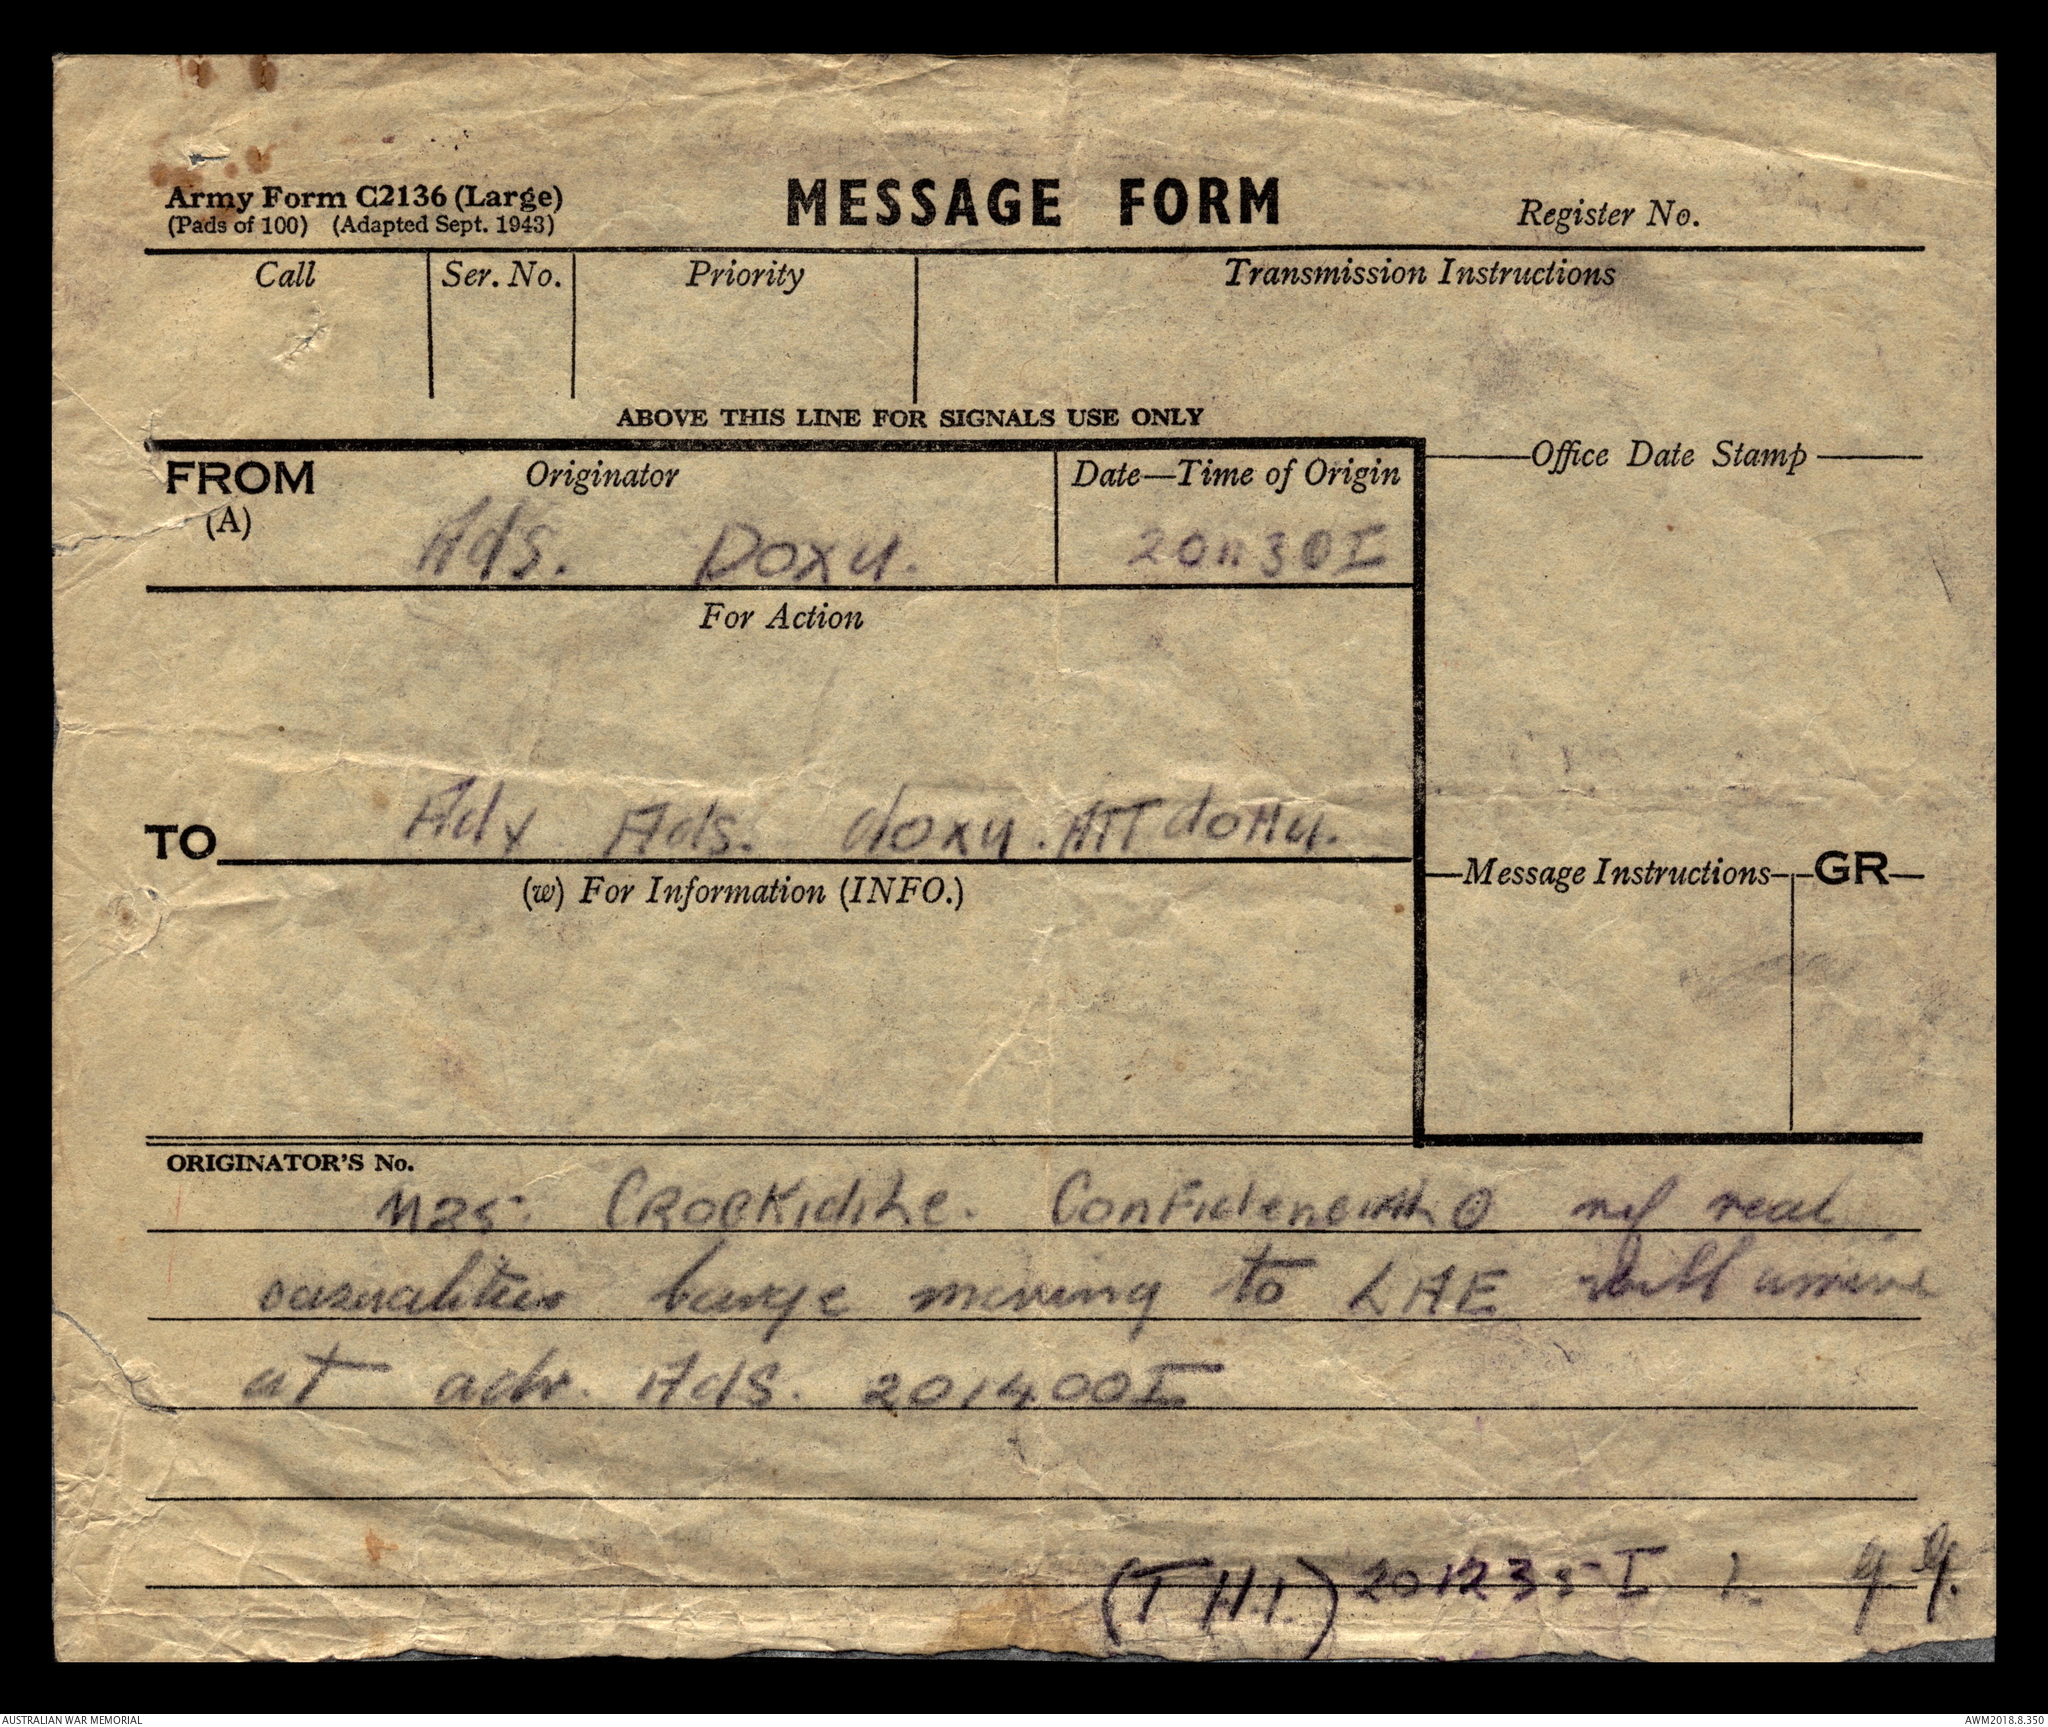 Army Form C2136 (Large)
(Pads of 100) (Adapted Sept. 1943)
MESSAGE FORM
Register No.
Call
Ser. No.
Priority
Transmission Instructions
ABOVE THIS LINE FOR SIGNALS USE ONLY
FROM
(A)
Originator
Ads. Doxy.
Date—Time of Origin
201130I
Office Date Stamp
For Action
TO
Adv Ads. doxy. ATT
(w) For Information (INFO.)
Message Instructions
GR
ORIGINATOR'S No.
M25. real
casualities barge moving to LAE will arrive
at adv. Ads. 201400I
(T H.I.) 201235I
AUSTRALIAN WAR MEMORIAL
AWM2018.8.350